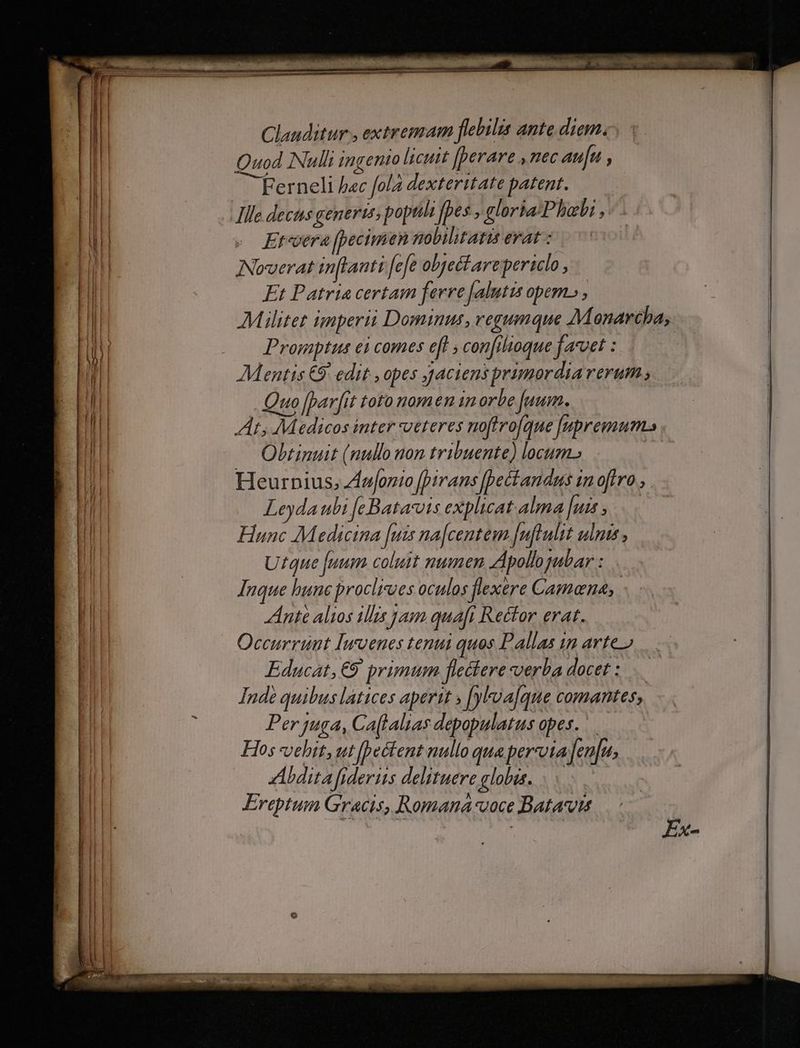 Clauditur, extremam flebilis ante diem.
Quod Nulli ingenio licuit ſperare, nec auſu,
Ferneli hæc ſolâ dexteritate patent.
Ille decus generis, populi ſpes, gloria Phœbi,
Et vera ſpecimen nobilitatis erat:
Noverat inſtanti ſeſe objectare periclo,
Et Patriæ certam ferre ſalutis opem,
Militet imperii Dominus, regumque Monarcha,
Promptus ei comes eſt, conſilioque favet:
Mentis & edit, opes jaciens primordia rerum,
Quo ſparſit toto nomen in orbe ſuum.
At, Medicos inter veteres noſtroſque ſupremum
Obtinuit (nullo non tribuente) locum,
Heurnius, Auſonio ſpirans ſpectandus in oſtro,
Leyda ubi ſe Batavis explicat alma ſuis,
Hunc Medicina ſuis naſcentem ſuſtulit ulnis,
Utque ſuum coluit numen Apollo jubar:
Inque hunc proclives oculos flexêre Camœnæ,
Antè alios illis jam quaſi Rector erat.
Occurrunt Iuvenes tenui quos Pallas in arte
Educat, & primum flectere verba docet:
Indè quibus latices aperit, ſylvaſque comantes,
Per juga, Caſtalias depopulatus opes.
Hos vehit, ut ſpectent nullo qua pervia ſenſu,
Abdita ſideriis delituere globis.
Ereptum Græcis, Romanâ voce Batavis
Ex-